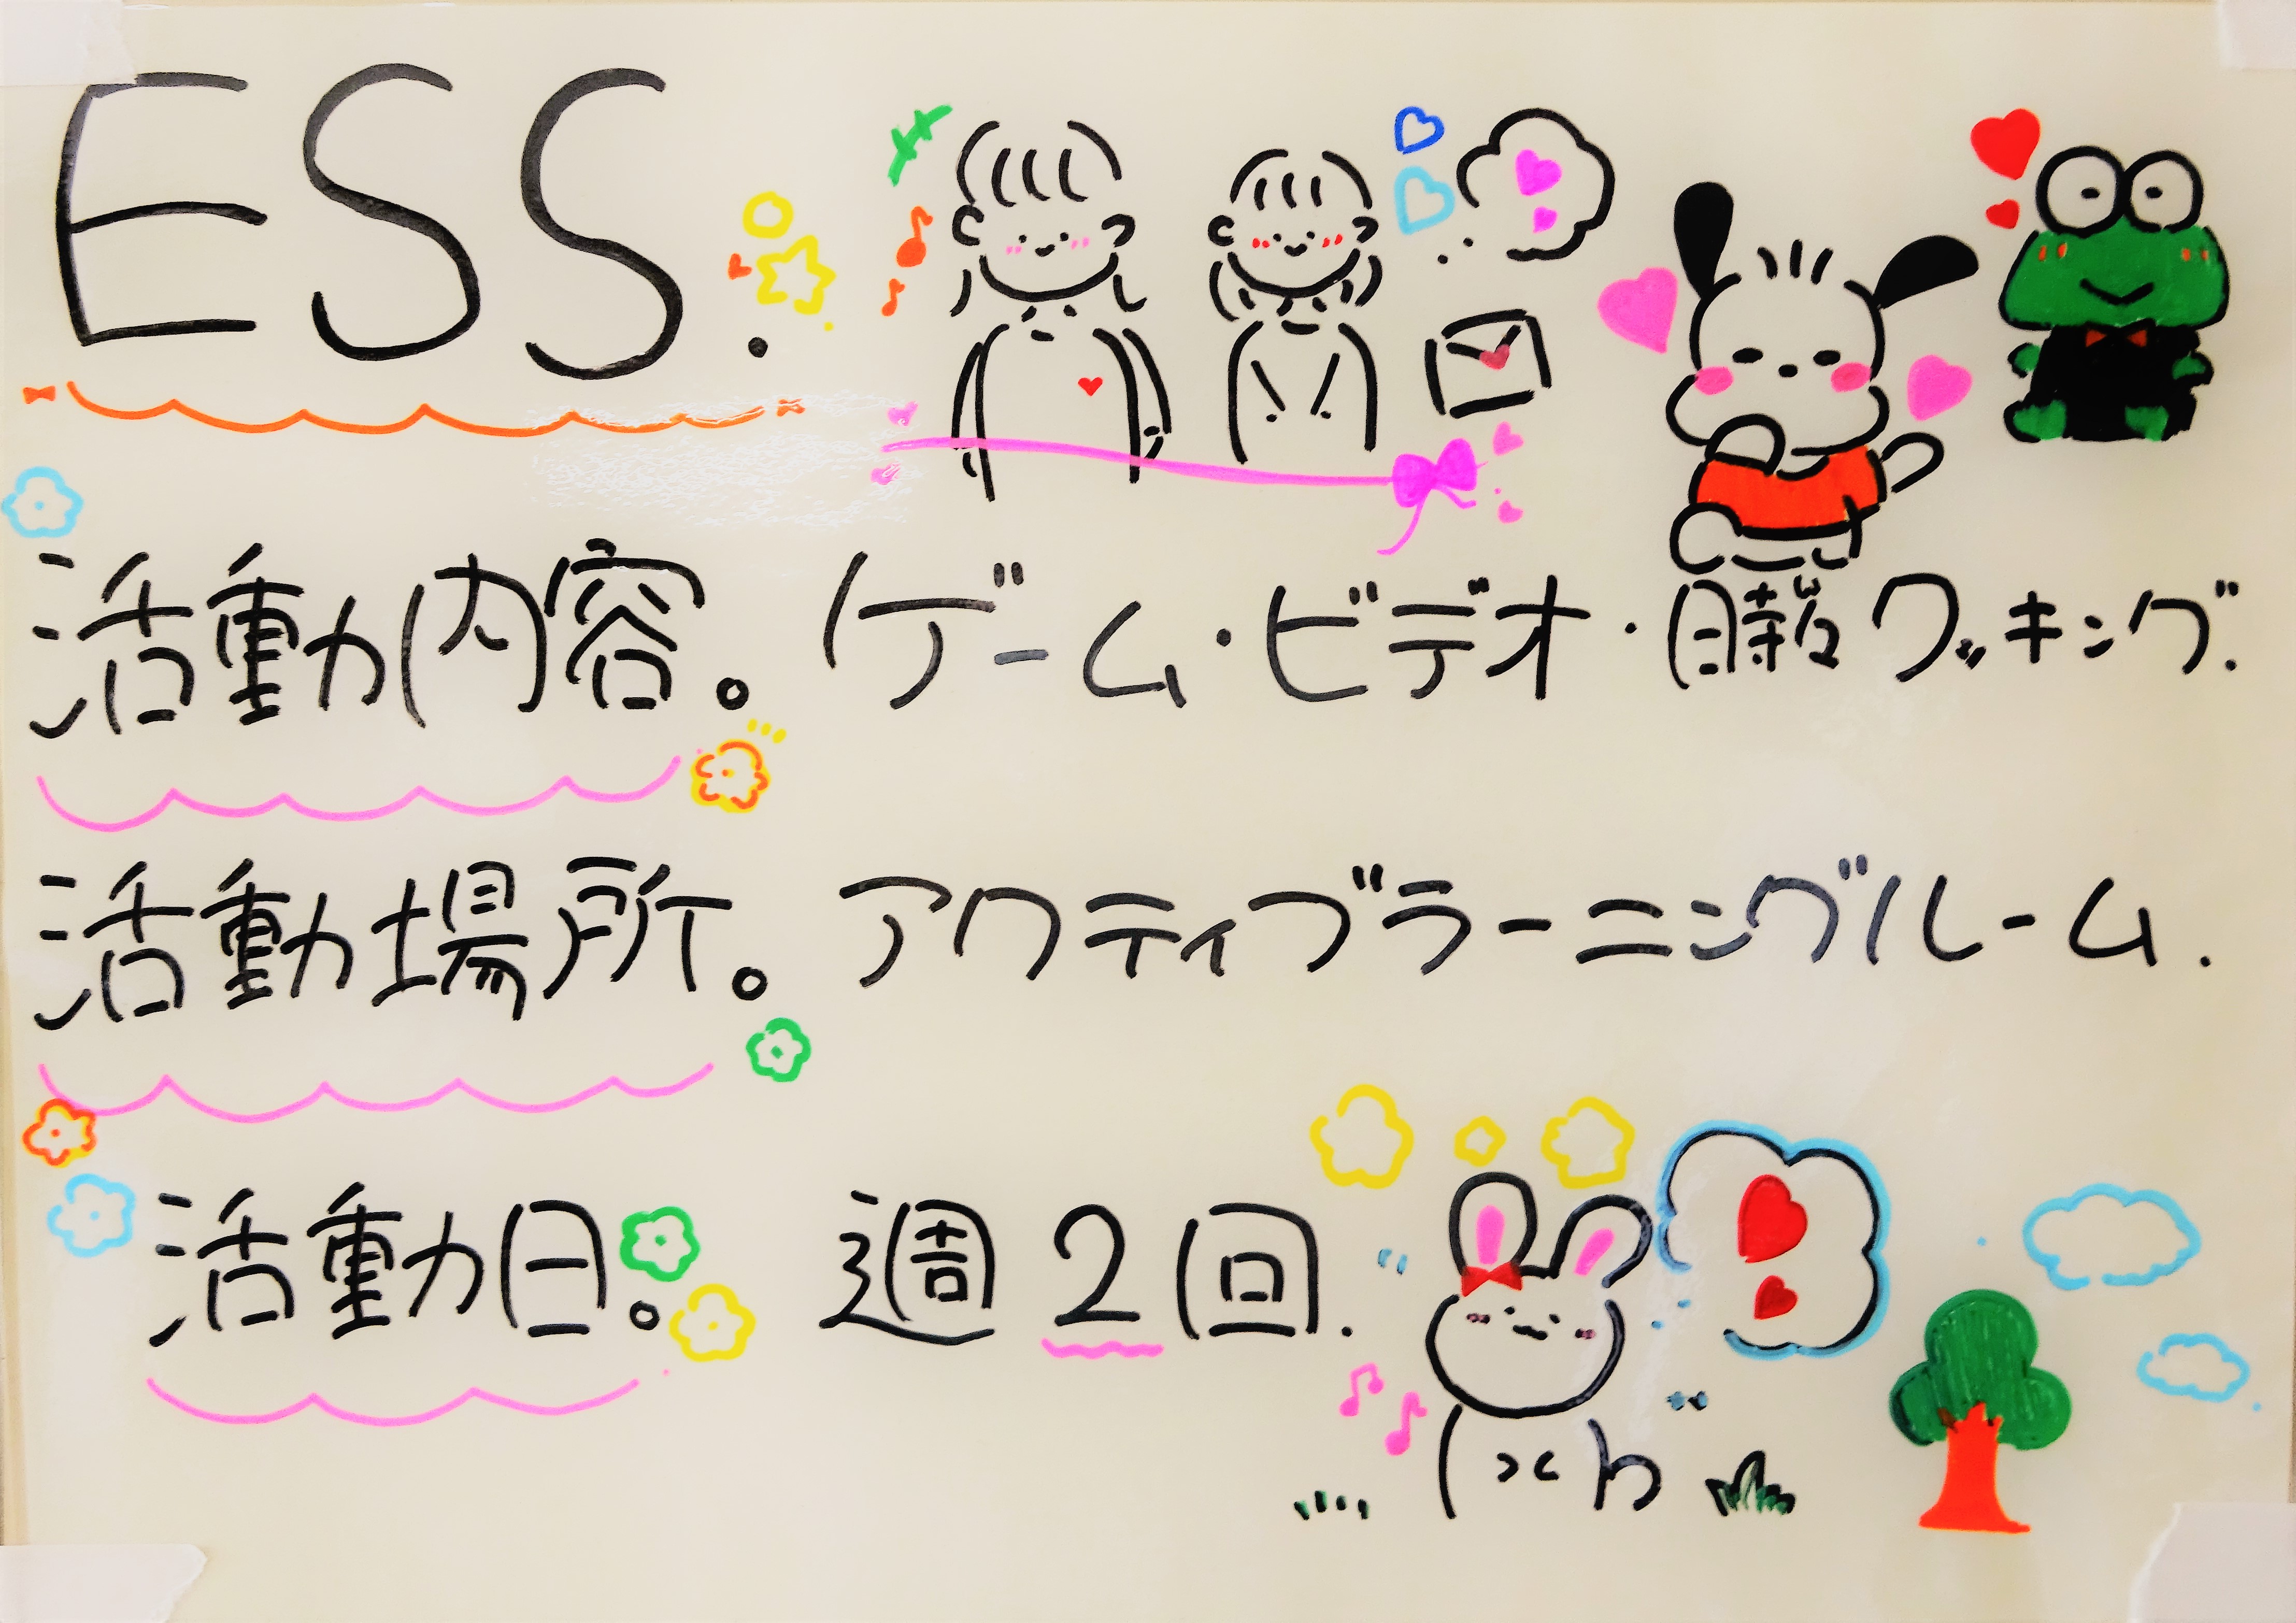 ESS.
活動内容。 ゲーム・ビデオ・時々クッキング.
活動場所。 アクティブラーニングルーム.
活動日。 週2回.